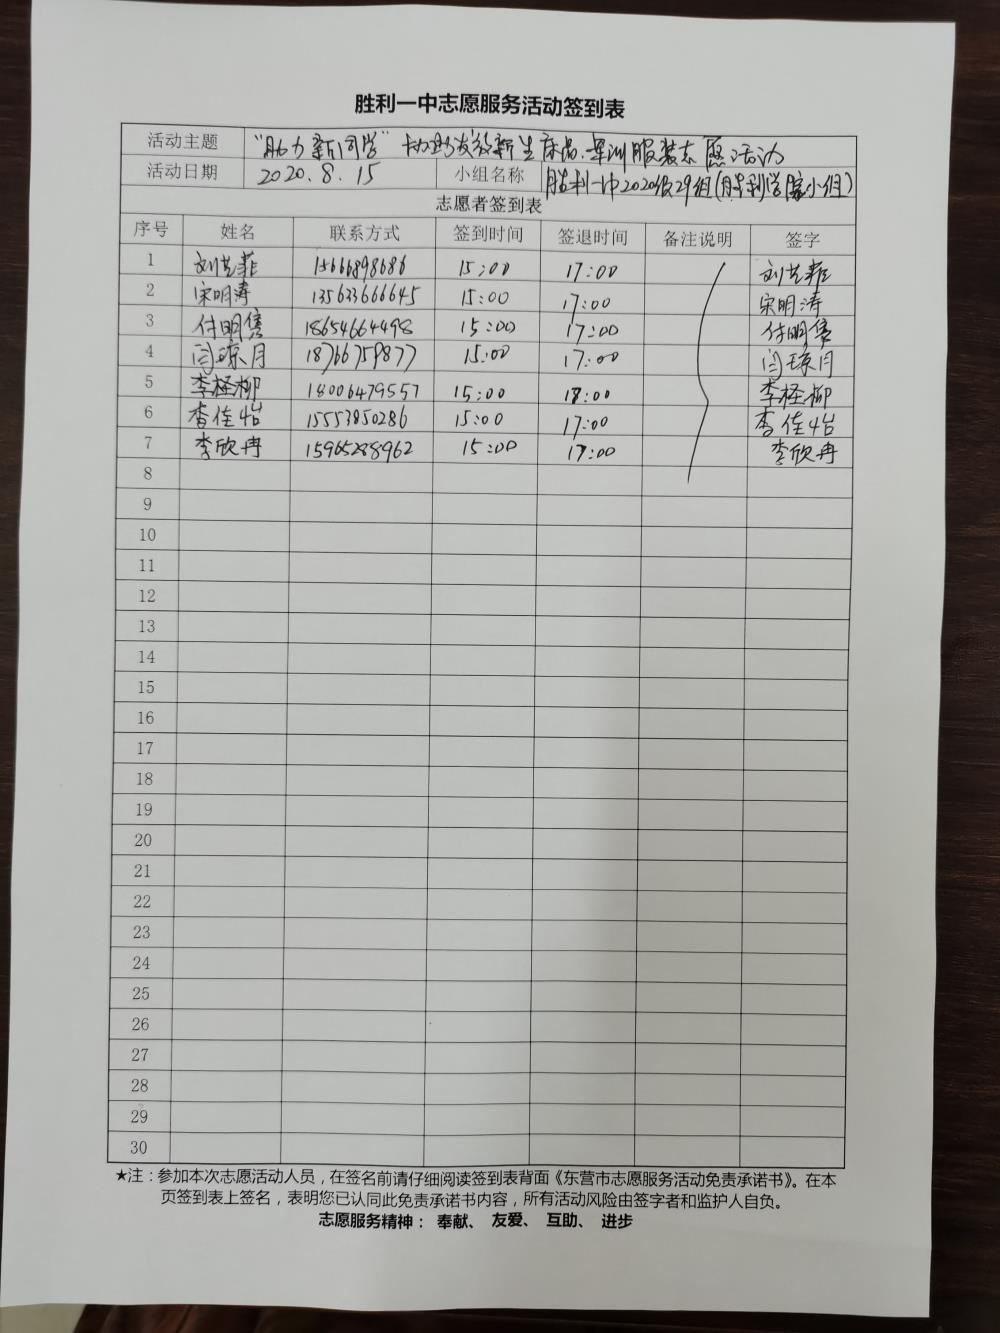 胜利一中志愿服务活动签到表
活动主题 "助力新同学"协助发放新生床品、军训服装志愿活动
活动日期 2020.8.15 小组名称 胜利一中2020级29组(胜利学院小组)
志愿者签到表
序号 姓名 联系方式 签到时间 签退时间 备注说明 签字
1 刘芝菲 15666898686 15:00 17:00 刘芝菲
2 宋明涛 13563366645 15:00 17:00 宋明涛
3 付明隽 18654664498 15:00 17:00 付明隽
4 闫琼月 18766759877 15:00 17:00 闫琼月
5 李柽柳 18006479557 15:00 18:00 李柽柳
6 李佳怡 15553850286 15:00 17:00 李佳怡
7 李欣冉 15965288962 15:00 17:00 李欣冉
8
9
10
11
12
13
14
15
16
17
18
19
20
21
22
23
24
25
26
27
28
29
30
★注：参加本次志愿活动人员，在签名前请仔细阅读签到表背面《东营市志愿服务活动免责承诺书》。在本
页签到表上签名，表明您已认同此免责承诺书内容，所有活动风险由签字者和监护人自负。
志愿服务精神： 奉献、 友爱、 互助、 进步